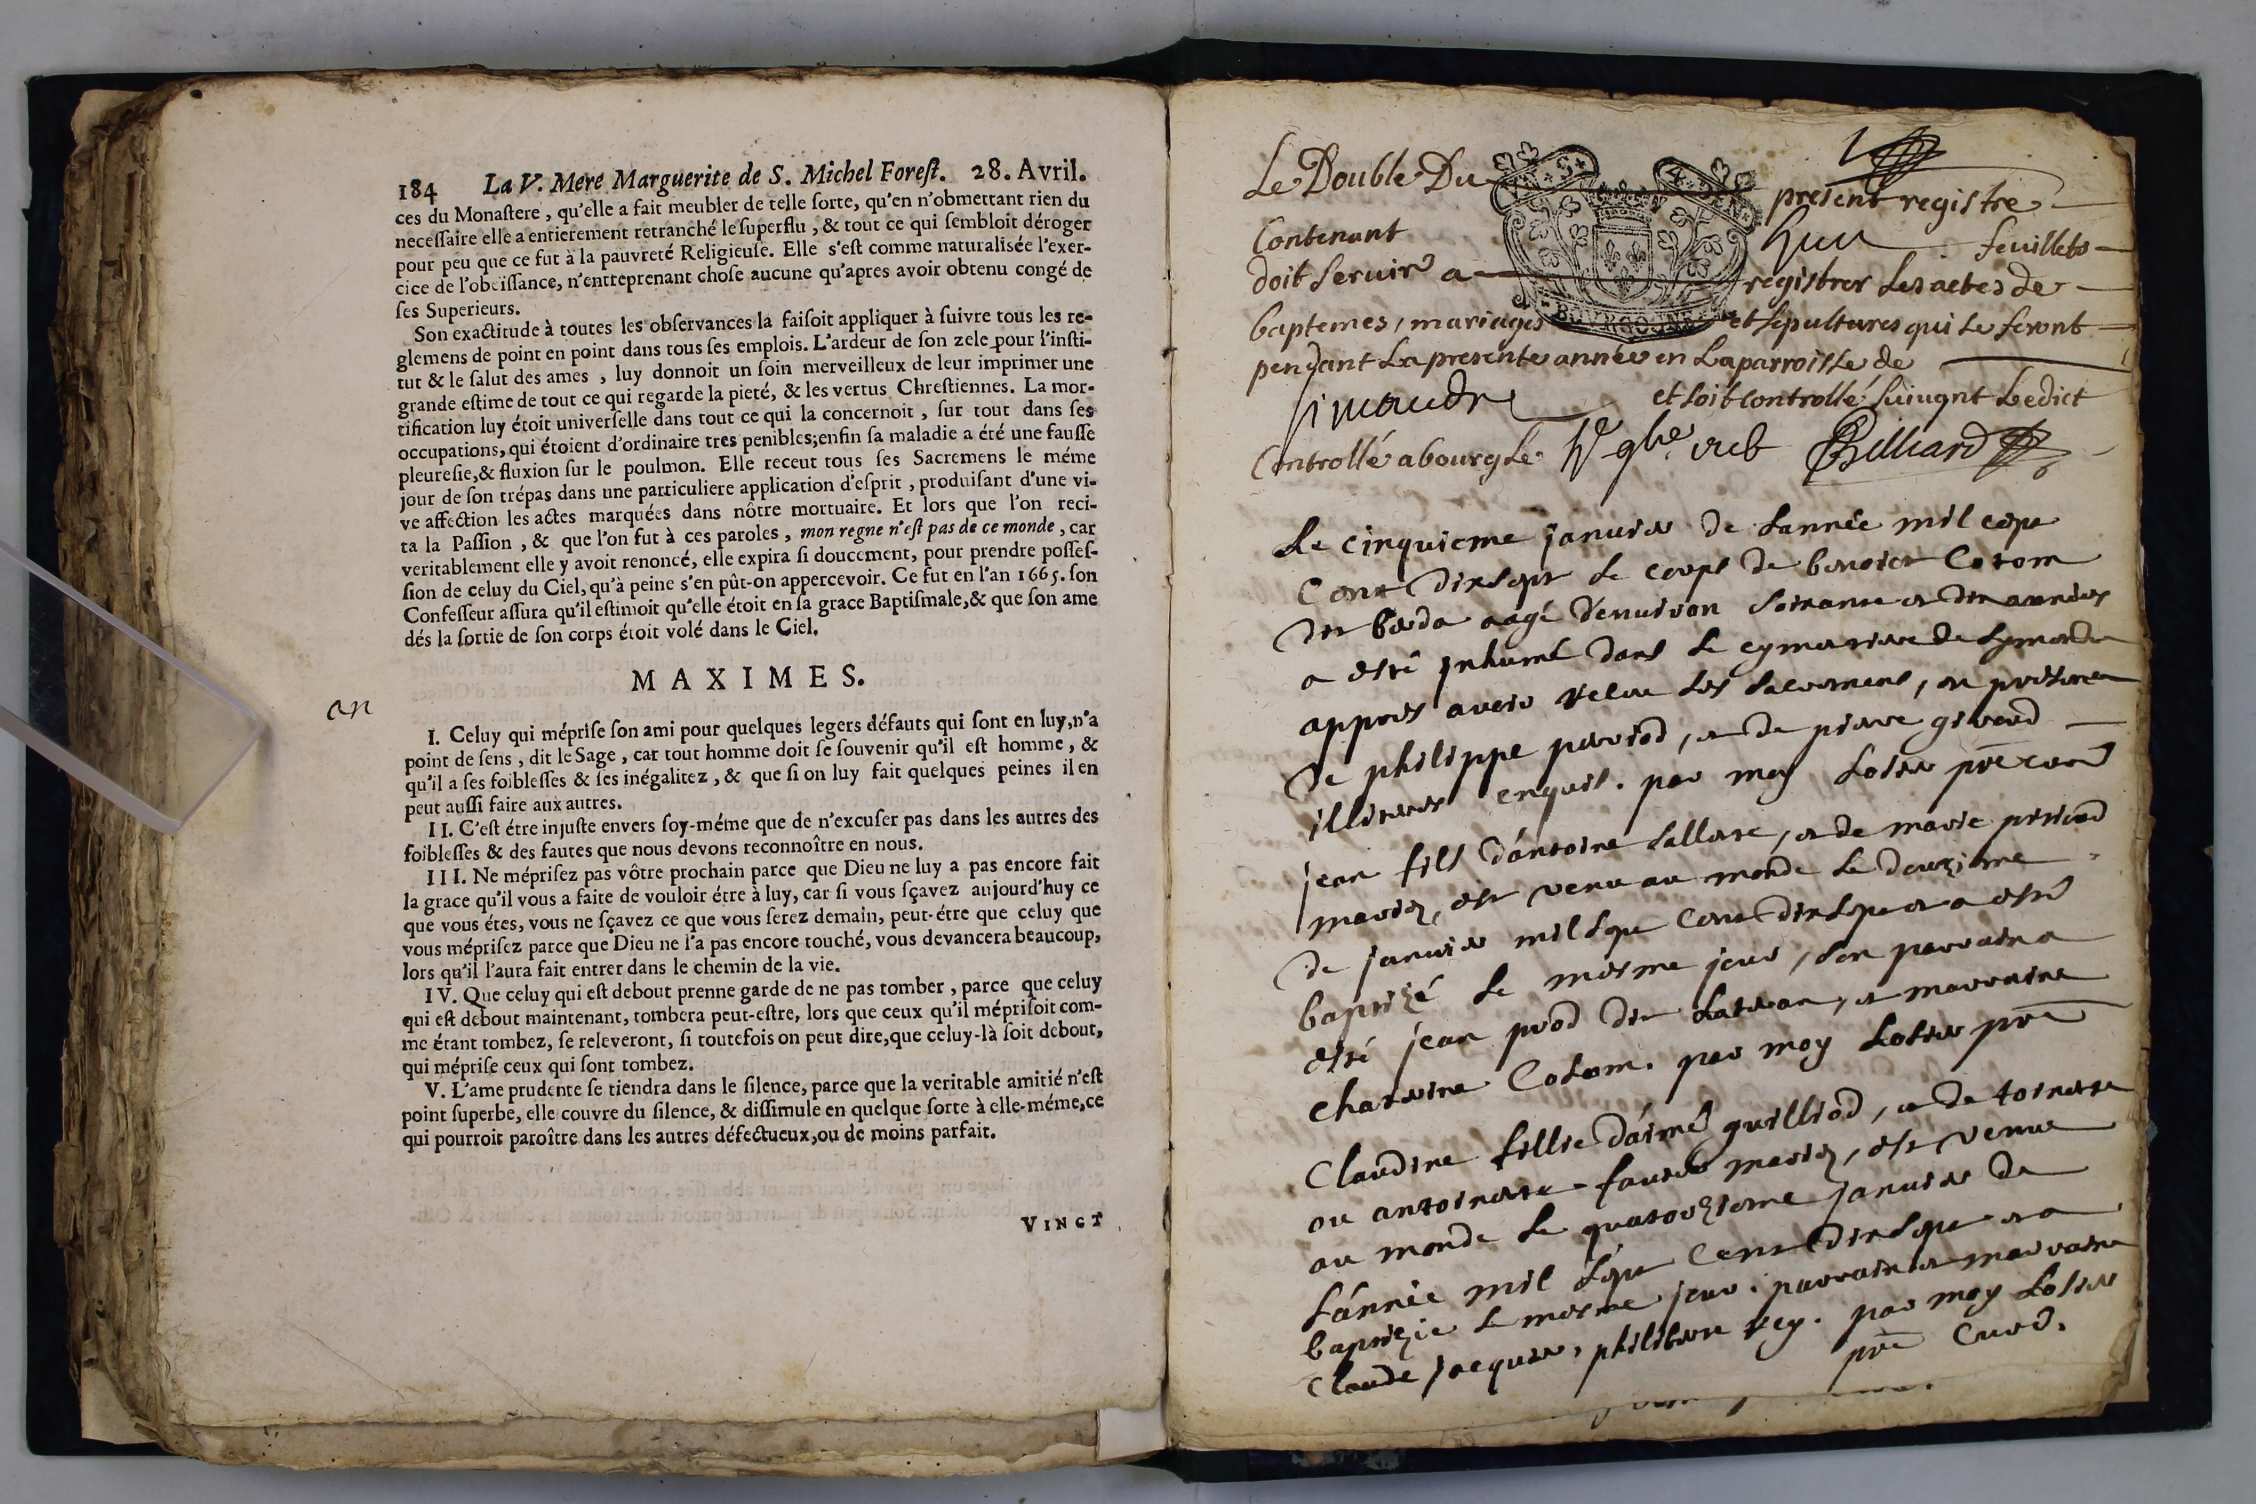 184 La V. Mere Marguerite de S. Michel Foreſt. 28. Avril.
ces du Monaſtere, qu'elle a fait meubler de telle ſorte, qu'en n'obmettant rien du
neceſſaire elle a entierement retranché le ſuperflu, & tout ce qui ſembloit déroger
pour peu que ce fut à la pauvreté Religieuſe. Elle s'eſt comme naturaliſée l'exer-
cice de l'obeïſſance, n'entreprenant choſe aucune qu'apres avoir obtenu congé de
ſes Superieurs.
Son exactitude à toutes les obſervances la faiſoit appliquer à ſuivre tous les re-
glemens de point en point dans tous ſes emplois. L'ardeur de ſon zele pour l'inſti-
tut & le ſalut des ames, luy donnoit un ſoin merveilleux de leur imprimer une
grande eſtime de tout ce qui regarde la pieté, & les vertus Chreſtiennes. La mor-
tification luy étoit univerſelle dans tout ce qui la concernoit, ſur tout dans ſes
occupations, qui étoient d'ordinaire tres penibles; enfin ſa maladie a été une fauſſe
pleureſie, & fluxion ſur le poulmon. Elle receut tous ſes Sacremens le méme
jour de ſon trépas dans une particuliere application d'eſprit, produiſant d'une vi-
ve affection les actes marquées dans nôtre mortuaire. Et lors que l'on reci-
ta la Paſſion, & que l'on fut à ces paroles, mon regne n'eſt pas de ce monde, car
veritablement elle y avoit renoncé, elle expira ſi doucement, pour prendre poſſeſ-
ſion de celuy du Ciel, qu'à peine s'en pût-on appercevoir. Ce fut en l'an 1665. ſon
Confeſſeur aſſura qu'il eſtimoit qu'elle étoit en ſa grace Baptiſmale, & que ſon ame
dés la ſortie de ſon corps étoit volé dans le Ciel.
MAXIMES.
an
I. Celuy qui mépriſe ſon ami pour quelques legers défauts qui ſont en luy, n'a
point de ſens, dit le Sage, car tout homme doit ſe ſouvenir qu'il eſt homme, &
qu'il a ſes foibleſſes & ſes inégalitez, & que ſi on luy fait quelques peines il en
peut auſſi faire aux autres.
II. C'eſt étre injuſte envers ſoy-méme que de n'excuſer pas dans les autres des
foibleſſes & des fautes que nous devons reconnoître en nous.
III. Ne mépriſez pas vôtre prochain parce que Dieu ne luy a pas encore fait
la grace qu'il vous a faite de vouloir étre à luy, car ſi vous ſçavez aujourd'huy ce
que vous étes, vous ne ſçavez ce que vous ſerez demain, peut-étre que celuy que
vous mépriſez parce que Dieu ne l'a pas encore touché, vous devancera beaucoup,
lors qu'il l'aura fait entrer dans le chemin de la vie.
IV. Que celuy qui eſt debout prenne garde de ne pas tomber, parce que celuy
qui eſt debout maintenant, tombera peut-eſtre, lors que ceux qu'il mépriſoit com-
me étant tombez, ſe releveront, ſi toutefois on peut dire, que celuy-là ſoit debout,
qui mépriſe ceux qui ſont tombez.
V. L'ame prudente ſe tiendra dans le ſilence, parce que la veritable amitié n'eſt
point ſuperbe, elle couvre du ſilence, & diſſimule en quelque ſorte à elle-méme, ce
qui pourroit paroître dans les autres défectueux, ou de moins parfait.
VINGT
Le Double Du present registre
Contenant huit feuillets
doit servir a registrer les actes de
baptemes, mariages et sepultures qui se feront
pendant la presente année en la parroisse de
simandre et soit controllé suivant l'edict
Controllé a bourg le 9bre Billiard
Le cinquieme janvier de l'année mil sept
Cent dixsept le corps de benoist Cotom
dit aagé d'environ soixante et dix années
a esté inhumé dans le cymetiere de symandre
appres avoir reçeu les sacremens, en presence
de philippe perriod, et de pierre giraud
illiteres enquis. par moy Losier pre curé
jean fils d'antoine sallere, et de marie perriod
mariez, est venu au monde le douzieme
de janvier mil sept cent dixsept et a esté
baptizé le mesme jour, son parrain a
esté jean prod dit Lateran, et marraine
Charvine Colom. par moy Losier pre
Claudine fillie d'aimé guilliod, et de toinette
ou antoinette favier mariez, est venue
au monde le quatorzieme janvier de
L'année mil sept cent dixsept et a
baptizée le mesme jour. parrain et marraine
Claude jacquier, philiberte Rey. par moy Losier
pre Curé.